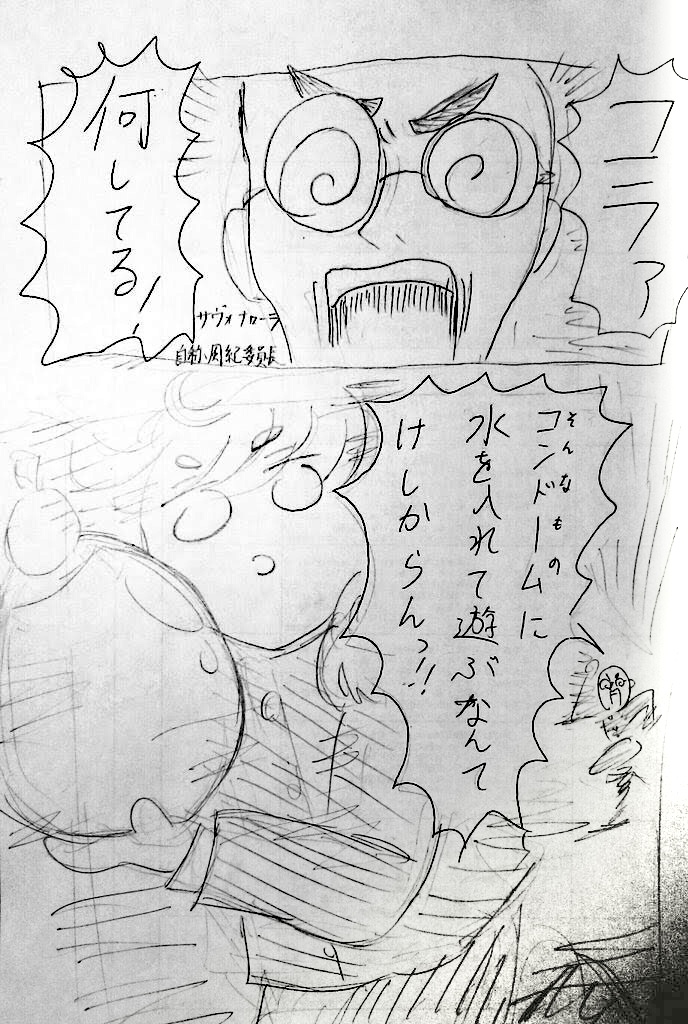 コラァ
何してる！
サヴォナローラ
自称・風紀委員長
コンドームに
そんなもの
水を入れて遊ぶなんて
けしからんっ!!